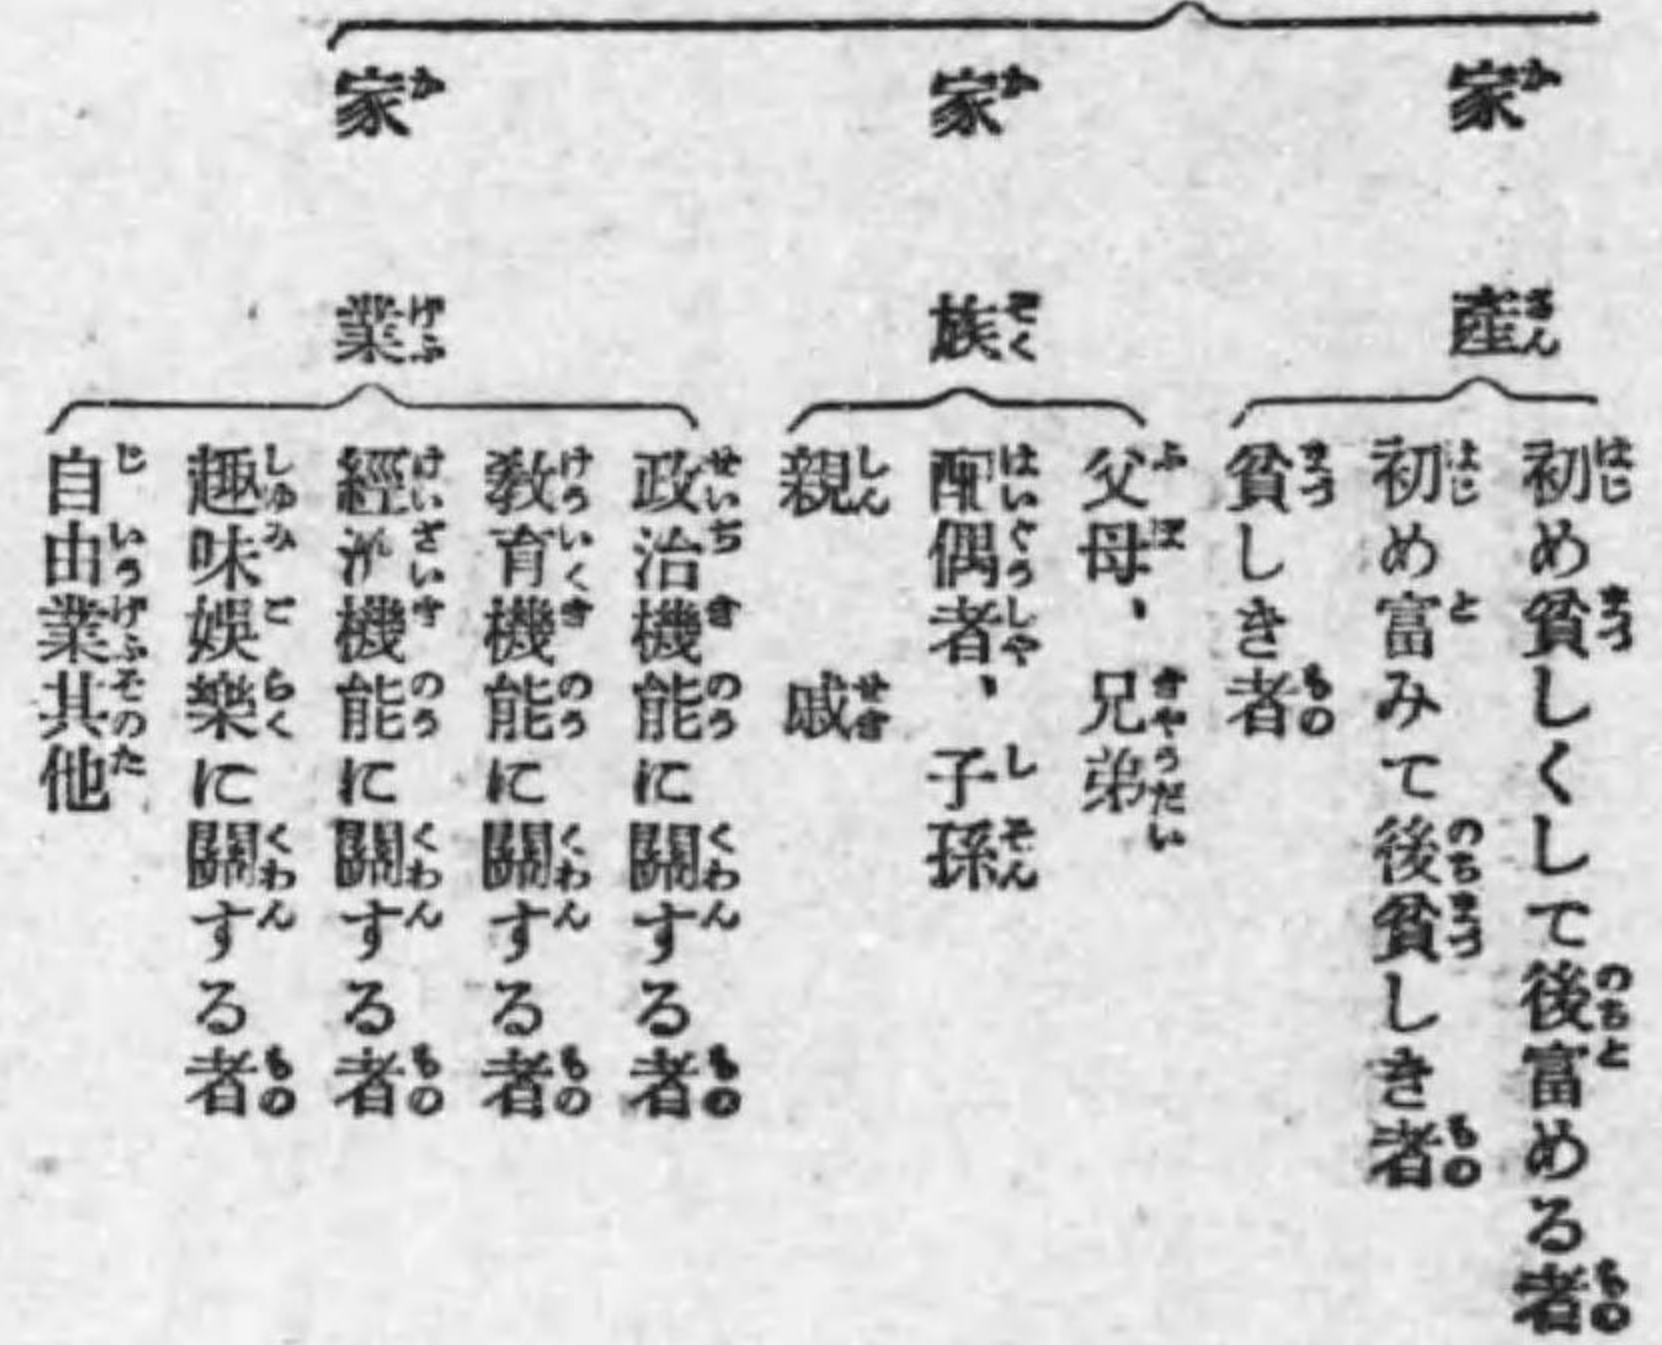 家産
初め貧しくして後富める者
初め富みて後貧しき者
貧しき者
家族
父母、兄弟
配偶者、子孫
親戚
家業
政治機能に關する者
敎育機能に關する者
經濟機能に關する者
趣味娯樂に關する者
自由業其他